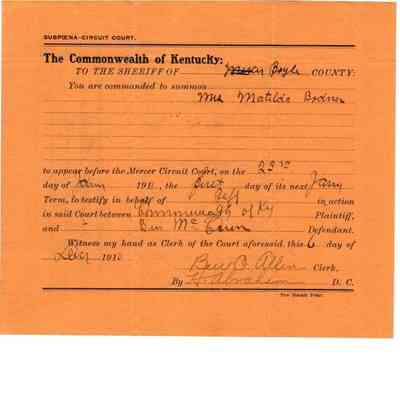 SUBPŒNA-CIRCUIT COURT.
The Commonwealth of Kentucky:
TO THE SHERIFF OF Mercer Boyle COUNTY:
You are commanded to summon
Mrs Matilda Bodner
to appear before the Mercer Circuit Court, on the 23rd
day of Jany 1911, the first day of its next Jany
Term, to testify in behalf of Deft in action
in said Court between Commonwealth of Ky Plaintiff,
and Defendant.
Witness my hand as Clerk of the Court aforesaid, this 6 day of
Decr 1910
Ben C. Allen Clerk,
By Abraham D. C.